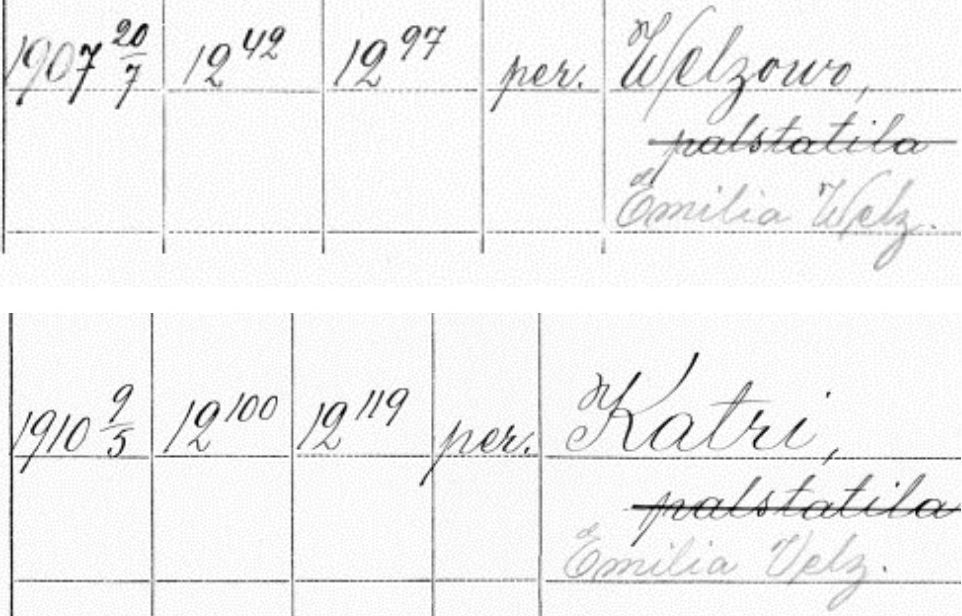 1907 20/7 12⁴² 12⁹⁷ per. Welzowo,
palstatila
Emilia Welz.
1910 9/5 12¹⁰⁰ 12¹¹⁹ per. Katri,
palstatila
Emilia Velz.